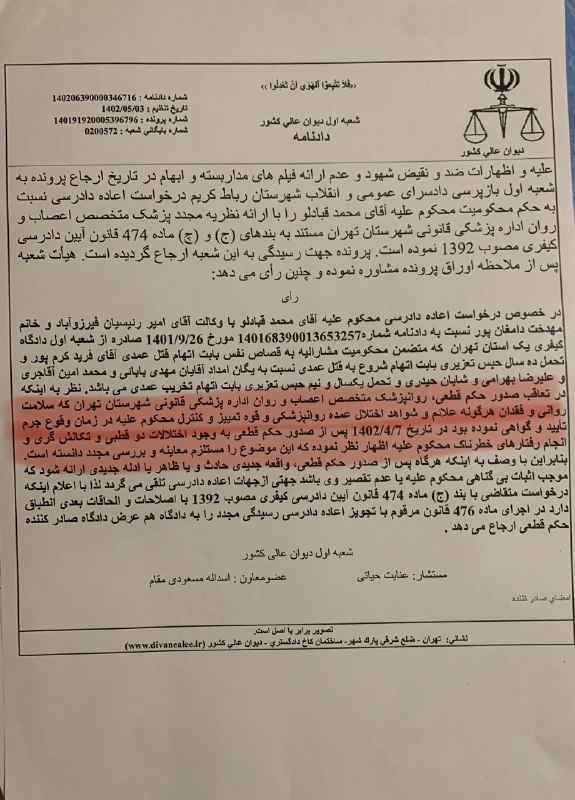 ««فَلاَ تَتَّبِعوُا اَلهَوَیَ اَنْ تَعْدِلُوا »»
شماره دادنامه : 140206390000346716
تاریخ تنظیم : 1402/05/03
شماره پرونده : 140191920005396796
شماره بایگانی شعبه : 0200572
شعبه اول دیوان عالی کشور
دادنامه
دیوان عالی کشور
علیه و اظهارات ضد و نقیض شهود و عدم ارائه فیلم های مداربسته و ابهام در تاریخ ارجاع پرونده به
شعبه اول بازپرسی دادسرای عمومی و انقلاب شهرستان رباط کریم درخواست اعاده دادرسی نسبت
به حکم محکومیت محکوم علیه آقای محمد قبادلو را با ارائه نظریه مجدد پزشک متخصص اعصاب و
روان اداره پزشکی قانونی شهرستان تهران مستند به بندهای (ج) و (چ) ماده 474 قانون آیین دادرسی
کیفری مصوب 1392 نموده است. پرونده جهت رسیدگی به این شعبه ارجاع گردیده است. هیأت شعبه
پس از ملاحظه اوراق پرونده مشاوره نموده و چنین رأی می دهد:
رأی
در خصوص درخواست اعاده دادرسی محکوم علیه آقای محمد قبادلو با وکالت آقای امیر رئیسیان فیرزوآباد و خانم
مهدخت دامغان پور نسبت به دادنامه شماره140168390013653257 مورخ 1401/9/26 صادره از شعبه اول دادگاه
کیفری یک استان تهران که متضمن محکومیت مشارالیه به قصاص نفس بابت اتهام قتل عمدی آقای فرید کرم پور و
تحمل ده سال حبس تعزیری بابت اتهام شروع به قتل عمدی نسبت به یگان امداد آقایان مهدی بابائی و محمد امین آقاجری
و علیرضا بهرامی و شایان حیدری و تحمل یکسال و نیم حبس تعزیری بابت اتهام تخریب عمدی می باشد. نظر به اینکه
در تعاقب صدور حکم قطعی، روانپزشک متخصص اعصاب و روان اداره پزشکی قانونی شهرستان تهران که سلامت
روانی و فقدان هرگونه علائم و شواهد اختلال عمده روانپزشکی و قوه تمییز و کنترل محکوم علیه در زمان وقوع جرم
تأیید و گواهی نموده بود در تاریخ 1402/4/7 پس از صدور حکم قطعی به وجود اختلالات دو قطبی و تکانش گری و
انجام رفتارهای خطرناک محکوم علیه اظهار نظر نموده که این موضوع را مستلزم معاینه و بررسی مجدد دانسته است.
بنابراین با وصف به اینکه هرگاه پس از صدور حکم قطعی، واقعه جدیدی حادث و یا ظاهر یا ادله جدیدی ارائه شود که
موجب اثبات بی گناهی محکوم علیه یا عدم تقصیر وی باشد جهتی ازجهات اعاده دادرسی تلقی می گردد لذا با اعلام اینکه
درخواست متقاضی با بند (ج) ماده 474 قانون آیین دادرسی کیفری مصوب 1392 با اصلاحات و الحاقات بعدی انطباق
دارد در اجرای ماده 476 قانون مرقوم با تجویز اعاده دادرسی رسیدگی مجدد را به دادگاه هم عرض دادگاه صادر کننده
حکم قطعی ارجاع می دهد .
شعبه اول دیوان عالی کشور
مستشار: عنایت حیاتی عضومعاون : اسداله مسعودی مقام
امضای صادر کننده
تصویر برابر با اصل است.
نشانی: تهران - ضلع شرقی پارک شهر- ساختمان کاخ دادگستری - دیوان عالی کشور (www.divanealee.ir)